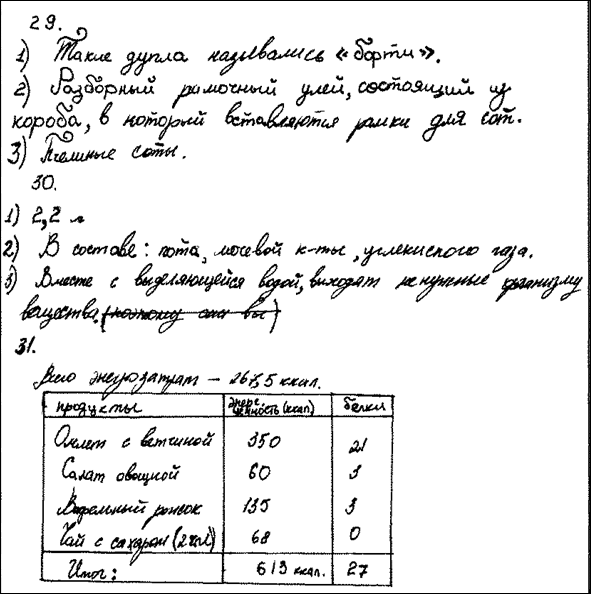 29.
1) Такие дупла назывались «борти».
2) Разборный рамочный улей, состоящий из
короба, в который вставляются рамки для сот.
3) Пчелиные соты.
30.
1) 2,2 л
2) В составе: пота, мочевой к-ты, углекислого газа.
3) Вместе с выделяющейся водой, выходят не нужные организму
вещества. (поэтому они вы)
31.
Всего энергозатрат – 267,5 ккал.
продукты энерг. ценность (ккал) белки
Омлет с ветчиной 350 21
Салат овощной 60 3
Вафельный рожок 135 3
Чай с сахаром (2 ч.л) 68 0
Итог: 613 ккал. 27